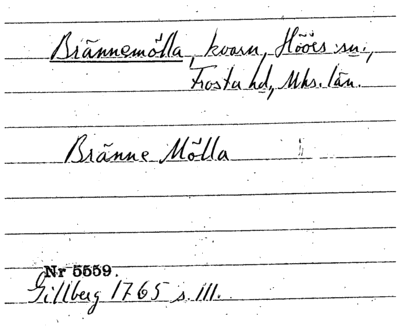 Brännemölla, kvarn, Höös sn.,
Frosta hd, Mhs. län.
Bränne Mölla
Nr 5559.
Gillberg 1765 s. 111.